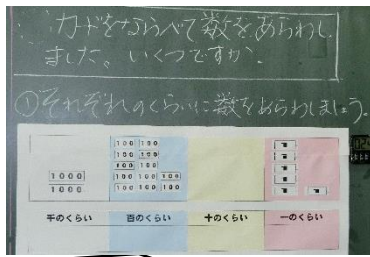 カードをならべて数をあらわし
ました。いくつですか。
①それぞれのくらいに数をあらわしましょう。
1000
1000
100 100
100 100
100 100
100 100 100
100 100 100
千のくらい 百のくらい 十のくらい 一のくらい